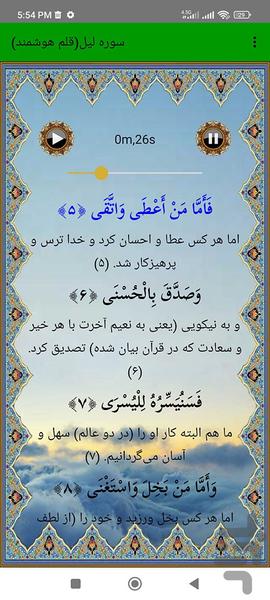 5:54 PM
سوره لیل(قلم هوشمند)
0m,26s
فَأَمَّا مَنْ أَعْطَى وَاتَّقَى ﴿۵﴾
اما هر کس عطا و احسان کرد و خدا ترس و
پرهیزکار شد. (۵)
وَصَدَّقَ بِالْحُسْنَى ﴿۶﴾
و به نیکویی (یعنی به نعیم آخرت با هر خیر
و سعادت که در قرآن بیان شده) تصدیق کرد.
(۶)
فَسَنُيَسِّرُهُ لِلْيُسْرَى ﴿۷﴾
ما هم البته کار او را (در دو عالم) سهل و
آسان می‌گردانیم. (۷)
وَأَمَّا مَنْ بَخِلَ وَاسْتَغْنَى ﴿۸﴾
اما هر کس بخل ورزید و خود را (از لطف